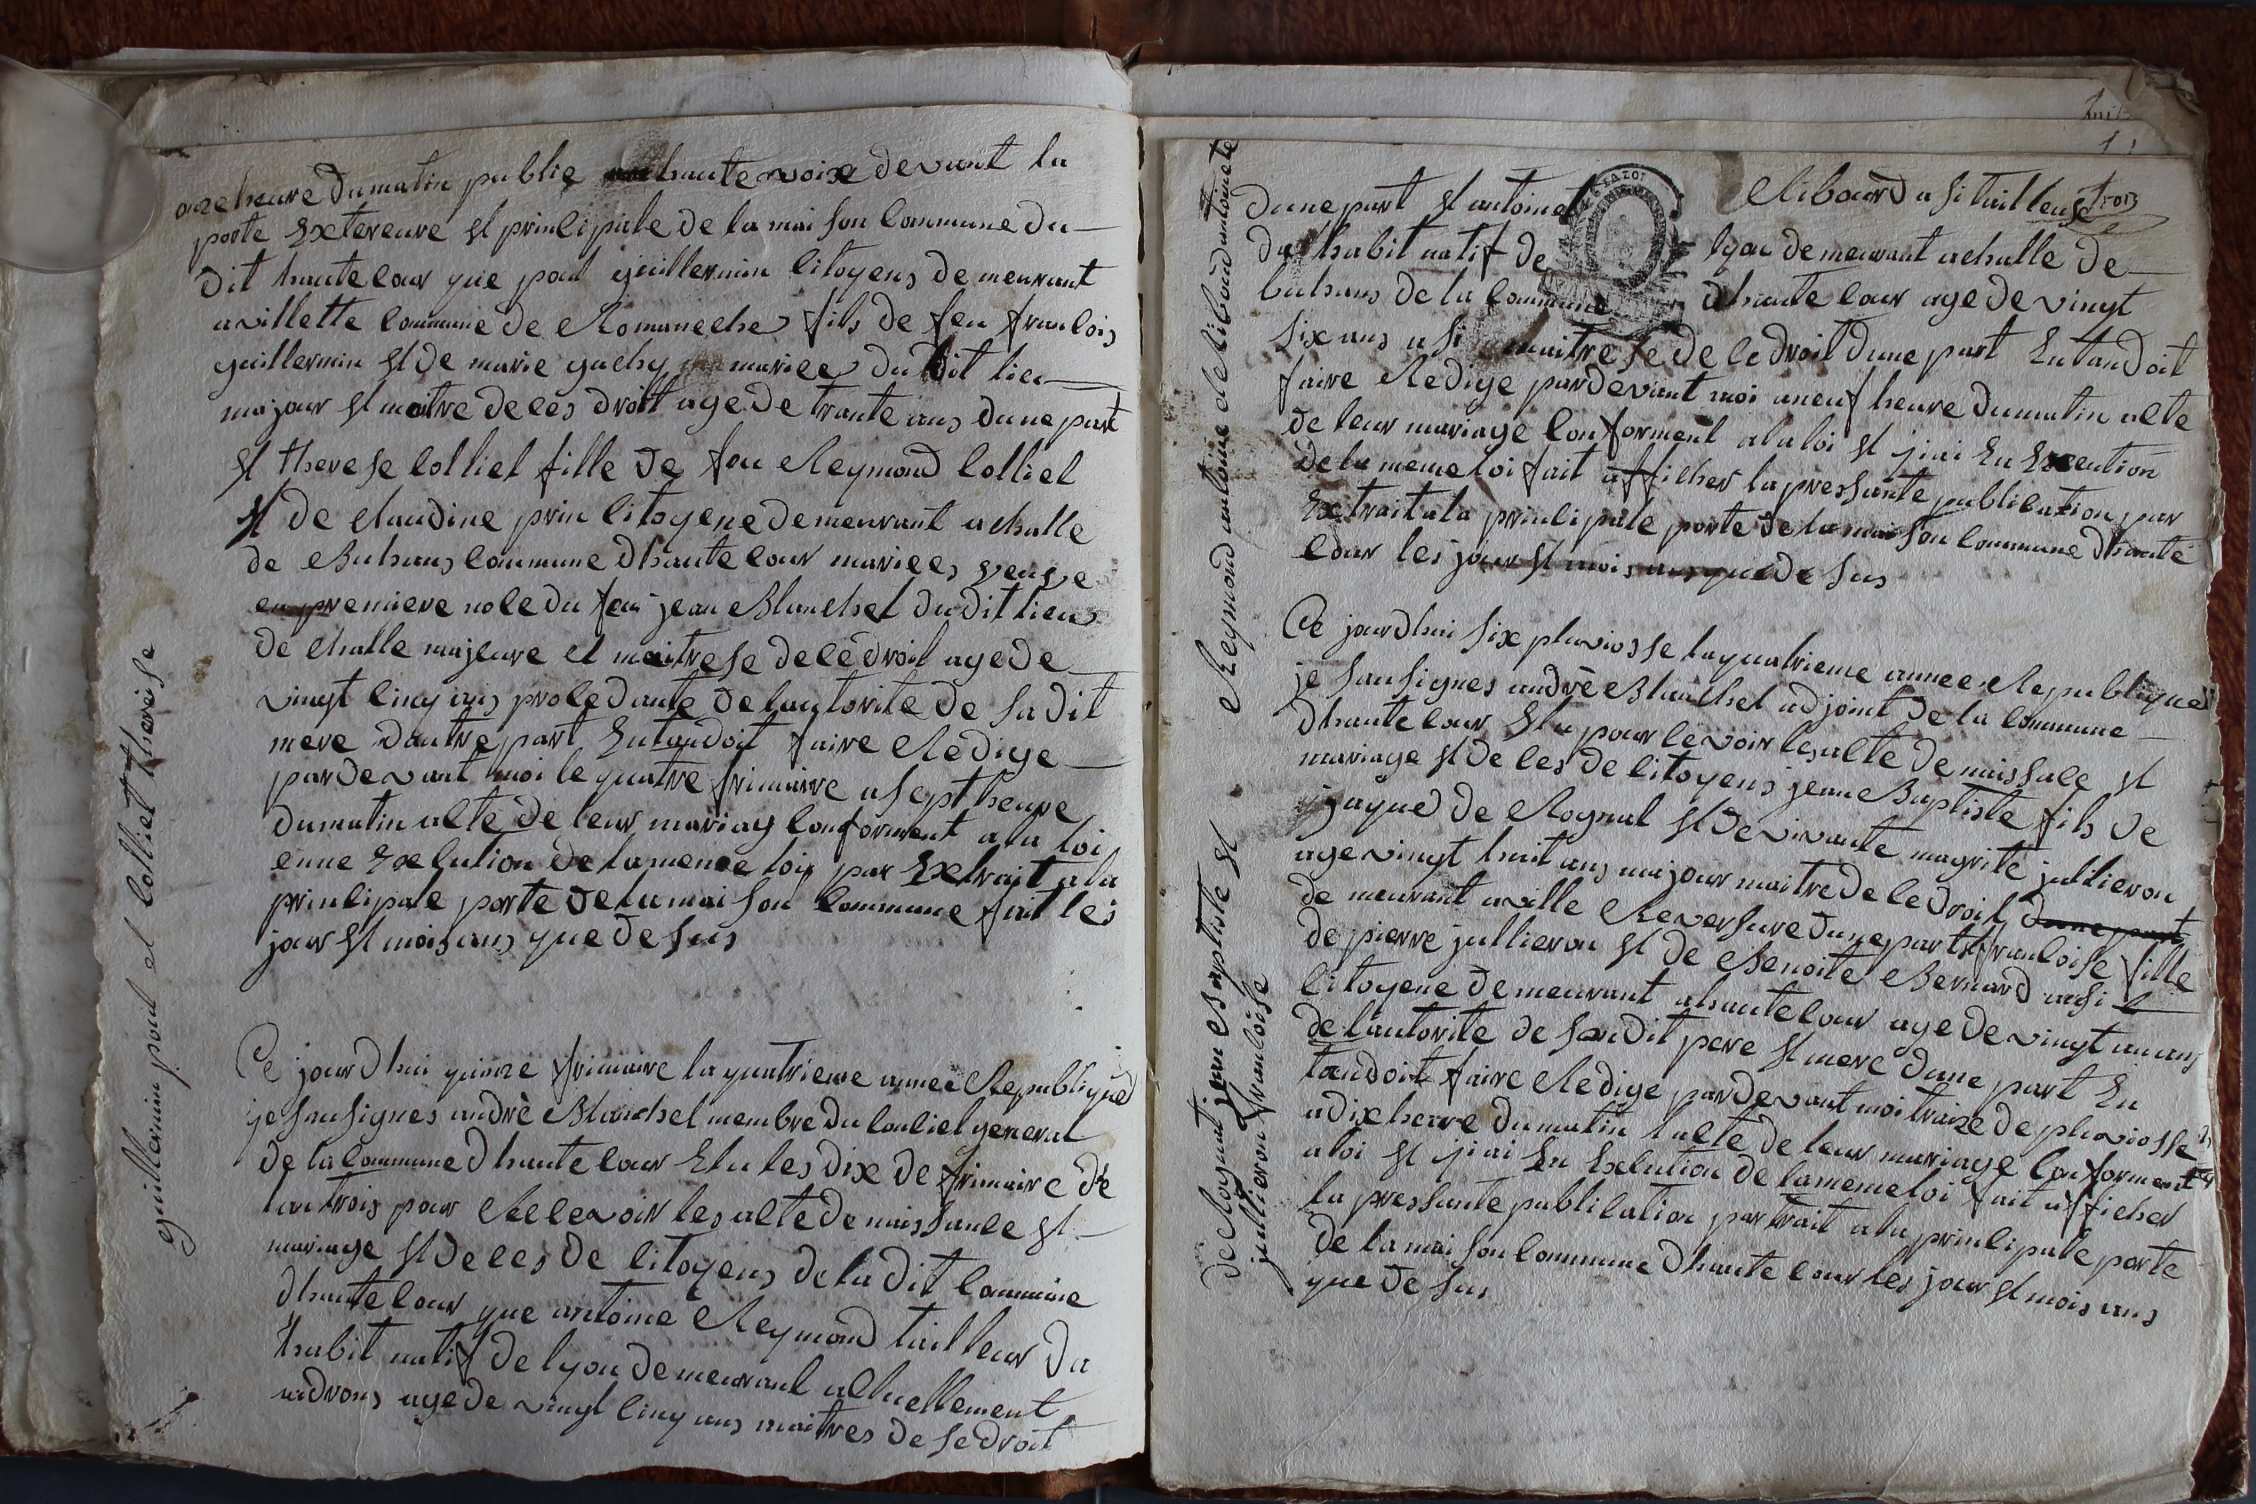 onze heure dumatin publie haute voixe devant la
porte Extereure et prinsipale de la mai son commune du
dit hautecour que poul guillermin citoyens demeurant
a villette commune de Romaneche fils de feu francois
guillermin et de marie guchy mariee du dit lieu
majour et maitre de ces droit age de trante ans dune part
et therese colliet fille de feu Reymond colliet
et de claudine prin citoyene demeurant a challe
de Buhans commune dhautecour mariees veuve
en premiere noce du feu jean Blanchet du dit lieu
de challe majeure et maitrese de cé droit agede
vingt cinq ans procedante de lautorite de sa dit
mere dautre part Entandoit faire Redige
pardevant moi le quatre frimaire a sept heure
dumatin acte de leur mariag conforment a la loi
enne Execution de lameme loi par Extrait a la
prinsipale porte de la mai son commune fait les
jour et mois ans que de sus
Ce jourdhui quinze frimaire la quatrieme annee Republique
je sousignes andré Blanchet membre du conciel general
de la commune dhautecour Elu les dix de frimaire de
lan trois pour Recevoir les acte de naissance et
mariage et de ces de citoyens de la dit commune
dhautecour que antoine Reymond tailleur da
habit natif de lyon demeurant actuellement
androns age de vingt cinq ans maitres de se droit
guillermin poul et colliet therese
trois
dune part et antoinet clibourd a si tailleuse
da habit natif de lyon demeurant a challe de
buhans de la commune dhautecour age de vingt
six ans a si maitre se de ce droit dune part Entandoit
faire Redige pardevant moi a neuf heure dumatin acte
de leur mariage conforment a la loi et jiai En Execution
de la meme loi fait afficher la pressante publication par
Extrait a la prinsipale porte de la mai son commune dhaute
cour les jour et mois ans que de sus
Reymond antoine de clibourd antoinete
Ce jourdhui six pluviosse la quatrieme annee Republique
je sousignes andrè Blanchet adjoint de la commune
dhautecour Elu pour cevoir les acte de naissace et
mariage et de ces de citoyens jean Baptiste fils de
jaque de Rognat et de vivante magrite jullieron
age vingt huit ans majour maitre de ce droit dune part
demeurant a ville Reversure dune part et francoise fille
de pierre jullieron et de Benoite Bernard ausi
citoyene demeurant a hautecour age de vingt un ans
de lautorite de san dit pere et mere dune part En
tandoit faire Redige pardevant moi traize de pluviosse
a dix heure dumatin lacte de leur mariage conforment
a loi et jiai En Execution de lameme loi fait afficher
la pressante publication par trait a la prinsipale porte
de la mai son commune dhautecour les jour et mois ans
que de sus
de Rognat jean Baptiste et
jullieron francoise